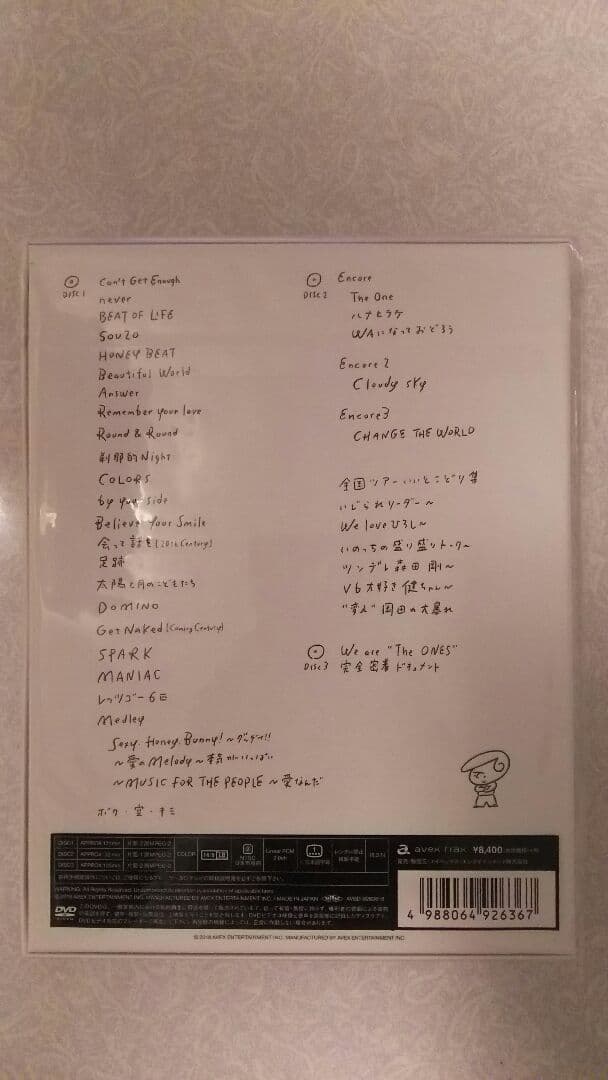 DISC 1
Can't Get Enough
never
BEAT OF LIFE
SOUZO
HONEY BEAT
Beautiful World
Answer
Remember your love
Round & Round
刹那的Night
COLORS
by your side
Believe Your Smile
会って話を[20th Century]
足跡
太陽と月のこどもたち
DOMINO
Get Naked [Coming Century]
SPARK
MANIAC
レッツゴー6匹
Medley
Sexy. Honey. Bunny!〜ダーリン!!
〜愛のMelody〜本気がいっぱい
〜MUSIC FOR THE PEOPLE〜愛なんだ
ボク・空・キミ
DISC 2
Encore
The One
ハナヒラケ
WAになっておどろう
Encore 2
Cloudy sky
Encore 3
CHANGE THE WORLD
全国ツアーいいとこどり集
いじられリーダー〜
We love ひろし〜
いのっちの盛り盛りトーク〜
ツンデレ森田剛〜
V6大好き健ちゃん〜
"変人"岡田の大暴れ
DISC 3
We are "The ONES"
完全密着ドキュメント
DISC1
DISC2
DISC3
COLOR
16:9 LB
2
NTSC
日本市場向
Linear PCM
2.0ch
レンタル禁止
複製不能
avex trax ¥8,400
DVD
4 988064 926367
© 2018 AVEX ENTERTAINMENT INC. MANUFACTURED BY AVEX ENTERTAINMENT INC.